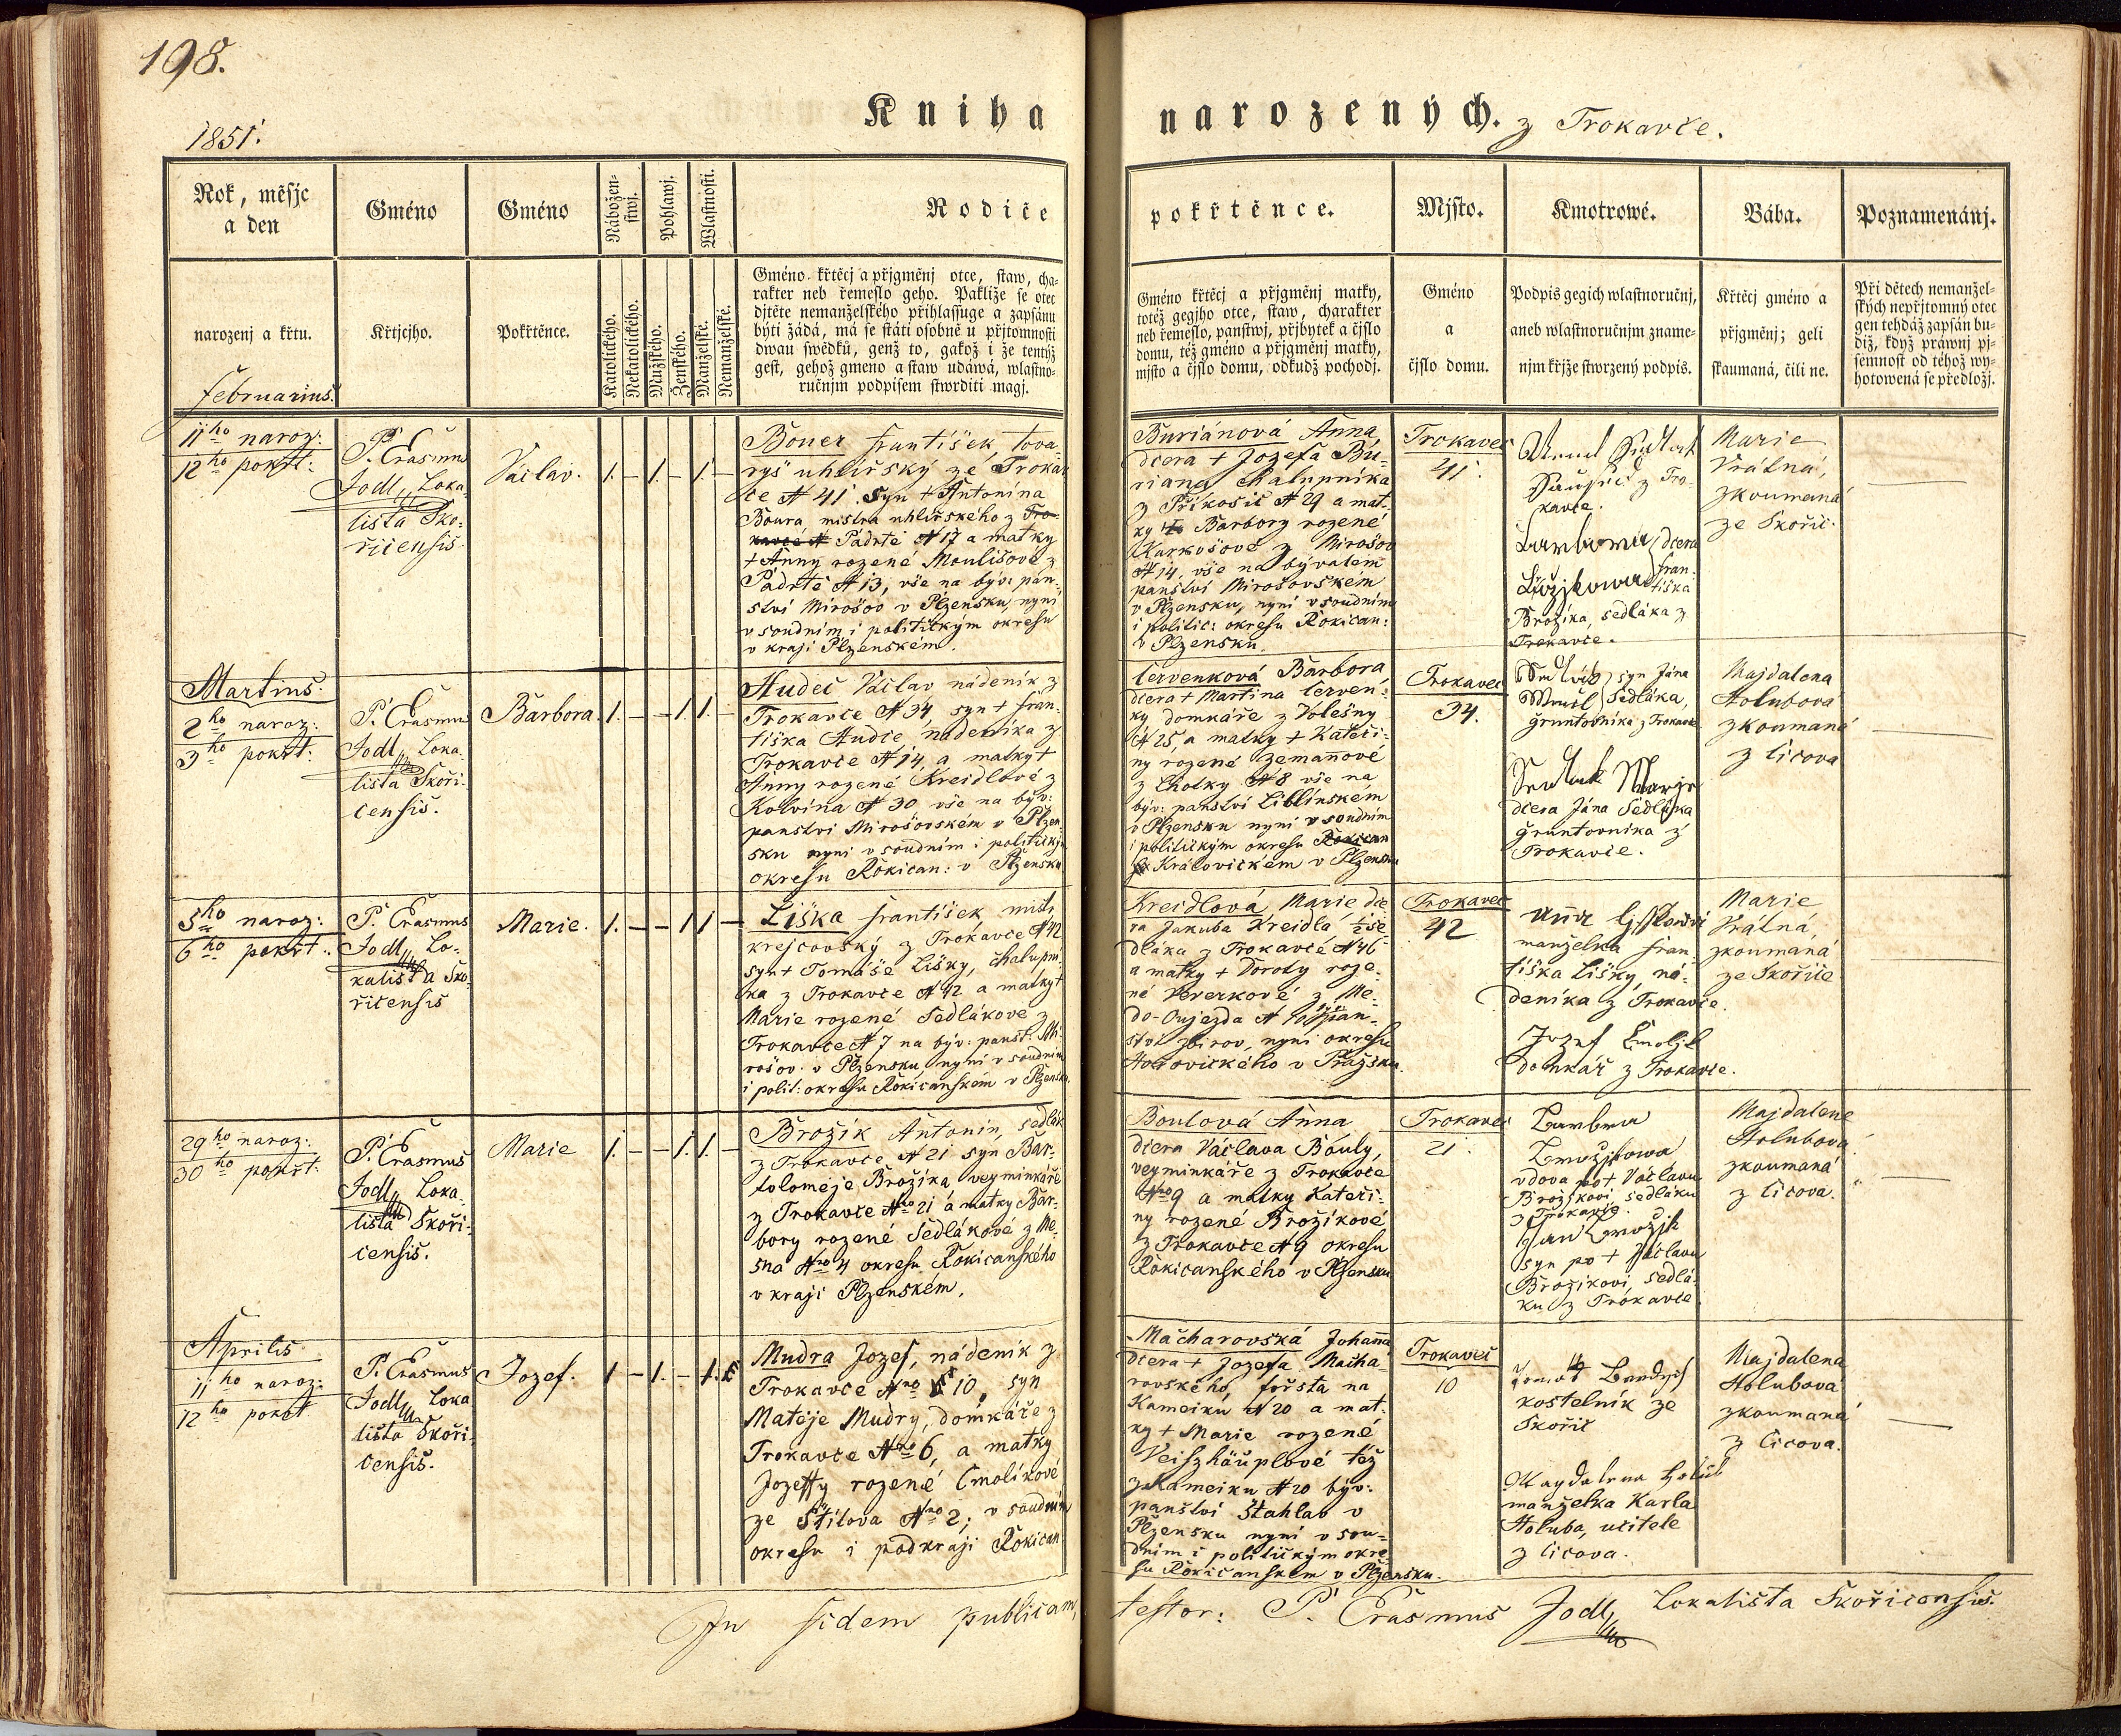 198.
Kniha narozených. z Trokavče.
1851.
Rok, měsjc
a den
narozenj a křtu.
Gméno
Křtjcjho.
Gméno
Pokřtěnce.
Nábožen-
stwj.
Katolického.
Nekatolického.
Pohlawj.
Mužského.
Ženského.
Wlastnosti.
Manželské.
Nemanželské.
Rodiče
Gméno křtěcj a přjgměnj otce, staw, cha-
rakter neb řemeslo geho. Pakliže se otec
djtěte nemanželského přihlassuge a zapsánu
býti žádá, má se státi osobně u přjtomnosti
dwau swědků, genž to, gakož i že tentýž
gest, gehož gmeno a staw udáwá, wlastno-
ručnjm podpisem stwrditi magj.
pokřtěnce.
Gméno křtěcj a přjgměnj matky,
totéž gegjho otce, staw, charakter
neb řemeslo, panstwj, přjbytek a čjslo
domu, též gméno a přjgměnj matky,
mjsto a čjslo domu, odkudž pochodj.
Mjsto.
Gméno
a
čjslo domu.
Kmotrowé.
Podpis gegich wlastnoručnj,
aneb wlastnoručnjm zname-
njm křjže stwrzený podpis.
Bába.
Křtěcj gméno a
přjgměnj; geli
skaumaná, čili ne.
Poznamenánj.
Při dětech nemanžel-
ských nepřjtomný otec
gen tehdáž zapsán bu-
diž, když práwnj pj-
semnost od téhož wy-
hotowená se předložj.
Februarius.
11ho naroz:
12ho pokřt:
P. Erasmus
Jodl, Loka-
lista Sko-
řicensis.
Václav.
1. – 1. – 1. –
Boner František, tova-
ryš uhlířský ze Troka-
če N 41. Syn + Antonína
Boura mistra uhlířského z Tro-
kavče N Padrtě N 17 a matky
+ Anny rozené Moulisové z
Padrtě N 13, vše na býv: pan-
ství Mirošov v Plzensku, nyní
v soudním i politickým okresu
v kraji Plzenském.
Buriánová Anna
dcera + Jozefa Bu-
riana chalupníka
z Příkosic N 29 a mat-
ky Barbory rozené
Karkošové z Mirošov
N 14, vše na bývalém
panství Mirošovském
v Plzensku, nyní v soudním
i politic: okresu Rokican:
v Plzensku.
Trokavec
41.
z Tro-
kavče.
Barbora dcera
Fran-
tiška
Brožíka, sedláka z
Trokavče.
Marie
Vrátná,
zkoumaná
ze Skořic.
Martius.
2ho naroz:
3ho pokřt:
P. Erasmus
Jodl, Loka-
lista Skoři-
censis.
Barbora.
1. – – 1. 1. –
Hudec Václav nádeník z
Trokavče N 34, syn + Fran-
tiška Hudce, nádeníka z
Trokavče N 14, a matky +
Anny rozené Kreidlové z
Kolvína N 30 vše na býv:
panství Mirošovském v Plzen-
sku nyní v soudním i politickým
okresu Rokican: v Plzensku
Červenková Barbora
dcera + Martina Červen-
ky domkáře z Volešny
N 25, a matky + Kateři-
ny rozené Zemanové
z Lhotky N 8 vše na
býv: panství Liblínském
v Plzensku nyní v soudním
i politickým okresu Rokican
Královickém v Plzensku
Trokavec
34.
syn Jána
Sedláka,
gruntovníka z Trokavče
Sedlak Marje
dcera Jána Sedláka
gruntovníka z
Trokavče.
Majdalena
Holubová
zkoumaná
z Čičova
5ho naroz:
6ho pokřt:
P. Erasmus
Jodl, Lo-
kalista Sko-
řicensis
Marie.
1. – – 1 1 –
Liška František, mistr
krejčovský z Trokavče N 42
syn + Tomáše Lišky, chalupní-
ka z Trokavče N 42 a matky +
Marie rozené Sedlákové z
Trokavče N 7 na býv: panst: Mi-
rošov v Plzensku, nyní v soudním
i polit: okresu Rokicanském v Plzensku.
Kreidlová Marie dce-
ra Jakuba Kreidla ½ se-
dláka z Trokavče N 46
a matky + Doroty roze-
né Veverkové z Me-
do-Oujezda N 10 pan-
ství Zbirov, nyní okresu
Hořovického v Pražsku.
Trokavec
42
Anna Ljsskowá
manželka Fran-
tiška Lišky, ná-
deníka z Trokavče.
Jozef Cmoljk
domkář z Trokavče.
Marie
Vrátná,
zkoumaná
ze Skořice
29ho naroz:
30ho pokřt:
P. Erasmus
Jodl, Loka-
lista Skoři-
censis.
Marie
1. – – 1. 1. –
Brožík Antonín, sedlák
z Trokavče N 21 syn Bar-
toloměje Brožíka, vejminkáře
z Trokavče Nro 21 a matky Bar-
bory rozené Sedlákové z Me-
šna Nro 4 okresu Rokicanského
v kraji Plzenském.
Boulová Anna
dcera Václava Bouly,
vejminkáře z Trokavče
Nro 9 a matky Kateři-
ny rozené Brožíkové
z Trokavče N 9 okresu
Rokicanského v Plzensku
Trokavec
21.
Barbora
Brozjkowa
vdova po + Václavu
Brožíkovi sedláku
z Trokavče.
Jan Brozjk
syn po + Václavu
Brožíkovi, sedlá-
ku z Trokavče
Majdalena
Holubová
zkoumaná
z Čičova.
Aprilis
11ho naroz:
12ho pokřt
P. Erasmus
Jodl, Loka-
lista Skoři-
censis.
Jozef.
1 – 1. – 1.
Mudra Jozef, nádeník z
Trokavče Nro 10, syn
Matěje Mudry, domkáře z
Trokavče Nro 6, a matky
Jozeffy rozené Cmolíkové
ze Štítova Nro 2; v soudním
okresu i podkraji Rokican
Macharovská Johanna
dcera + Jozefa Macha-
rovského, foršta na
Kameiku N 20 a mat-
ky + Marie rozené
Veiszhäuplové též
z Kameiku N 20 býv:
panství Štahlav v
Plzensku nyní v sou-
dním i politickým okre-
su Rokicanském v Plzensku.
Trokavec
10
kostelník ze
Skořic
Magdalena Holub
manželka Karla
Holuba, učitele
z Čičova.
Majdalena
Holubová
zkoumaná
z Čičova.
In fidem publicam testor: P. Erasmus Jodl, Lokalista Skořicensis.